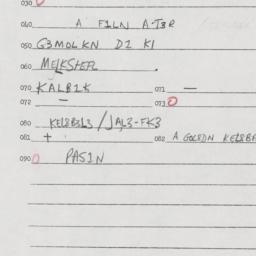 030 0
040 A F1LN A-J3R
050 G3MOLKN D1 K1
060 MELKSHER .
070 KALB1K 071 —
072 — 073 0
080 KEL8B3L3 / JAL3-FK3
081 + 082 A GOLSDN KEL8BR
090 0 PAS1N